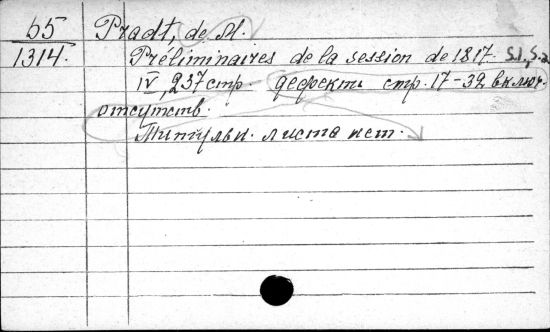 55 Pradt, de M.
1314. Préliminaires de la session de 1817. S.l., S.a
IV, 237 стр. дефекты стр. 17-32 включ.
отсутств.
Титульн. листа нет.